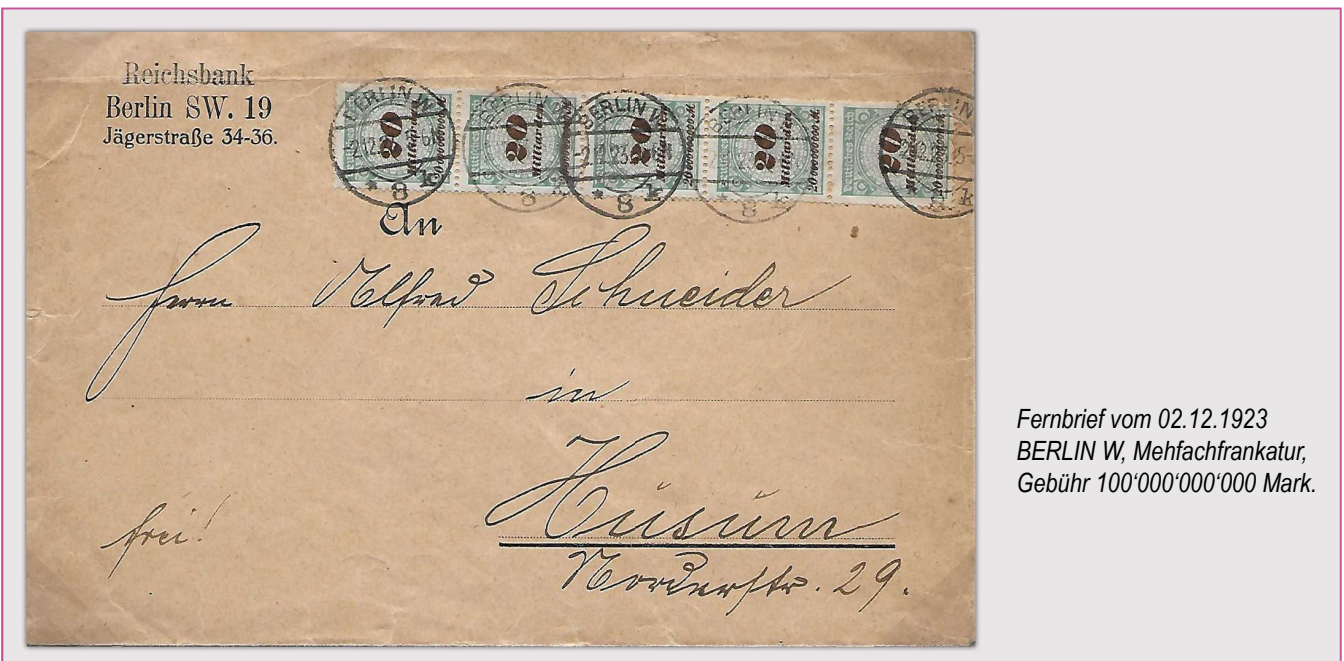 Reichsbank
Berlin SW. 19
Jägerstraße 34-36.
BERLIN W
BERLIN W
BERLIN W
BERLIN
BERLIN
20 Milliarden
20 Milliarden
20 Milliarden
20 Milliarden
20 Milliarden
* 8 k
* 8
* 8 k
8 k
k
An
Herrn Alfred Schneider
in
Husum
Norderstr. 29.
frei!
Fernbrief vom 02.12.1923
BERLIN W, Mehfachfrankatur,
Gebühr 100‘000‘000‘000 Mark.